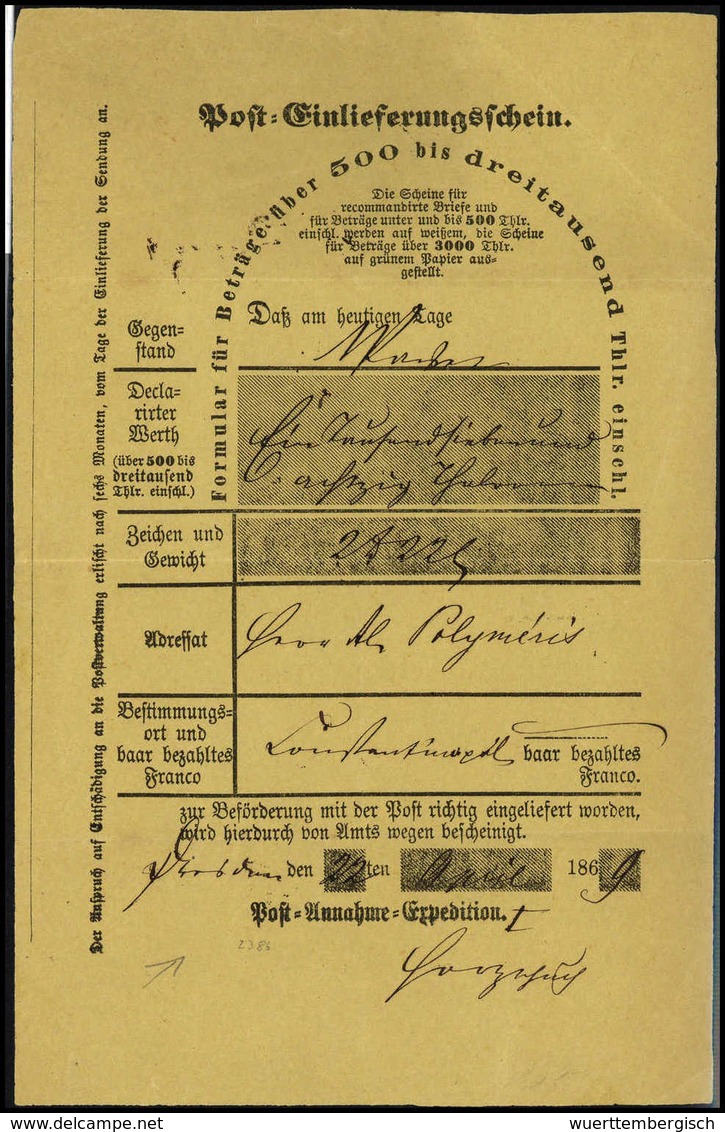 Post=Einlieferungsschein.
Formular für Beträge über 500 bis dreitausend Thlr. einschl.
Die Scheine für
recommandirte Briefe und
für Beträge unter und bis 500 Thlr.
einschl. werden auf weißem, die Scheine
für Beträge über 3000 Thlr.
auf grünem Papier aus-
gestellt.
Daß am heutigen Tage
Gegen-
stand
Decla-
rirter
Werth
(über 500 bis
dreitausend
Thlr. einschl.)
Ein Tausend sieben und
achtzig Thaler
Zeichen und
Gewicht
Adressat
Herr Al. Polyméris
Bestimmungs-
ort und
baar bezahltes
Franco
Constantinopel baar bezahltes
Franco.
zur Beförderung mit der Post richtig eingeliefert worden,
wird hierdurch von Amts wegen bescheinigt.
Dresden den 22ten April 1869
Post=Annahme=Expedition. I
2386
Der Anspruch auf Entschädigung an die Postverwaltung erlischt nach sechs Monaten, vom Tage der Einlieferung der Sendung an.
delcampe.net
wuerttembergisch